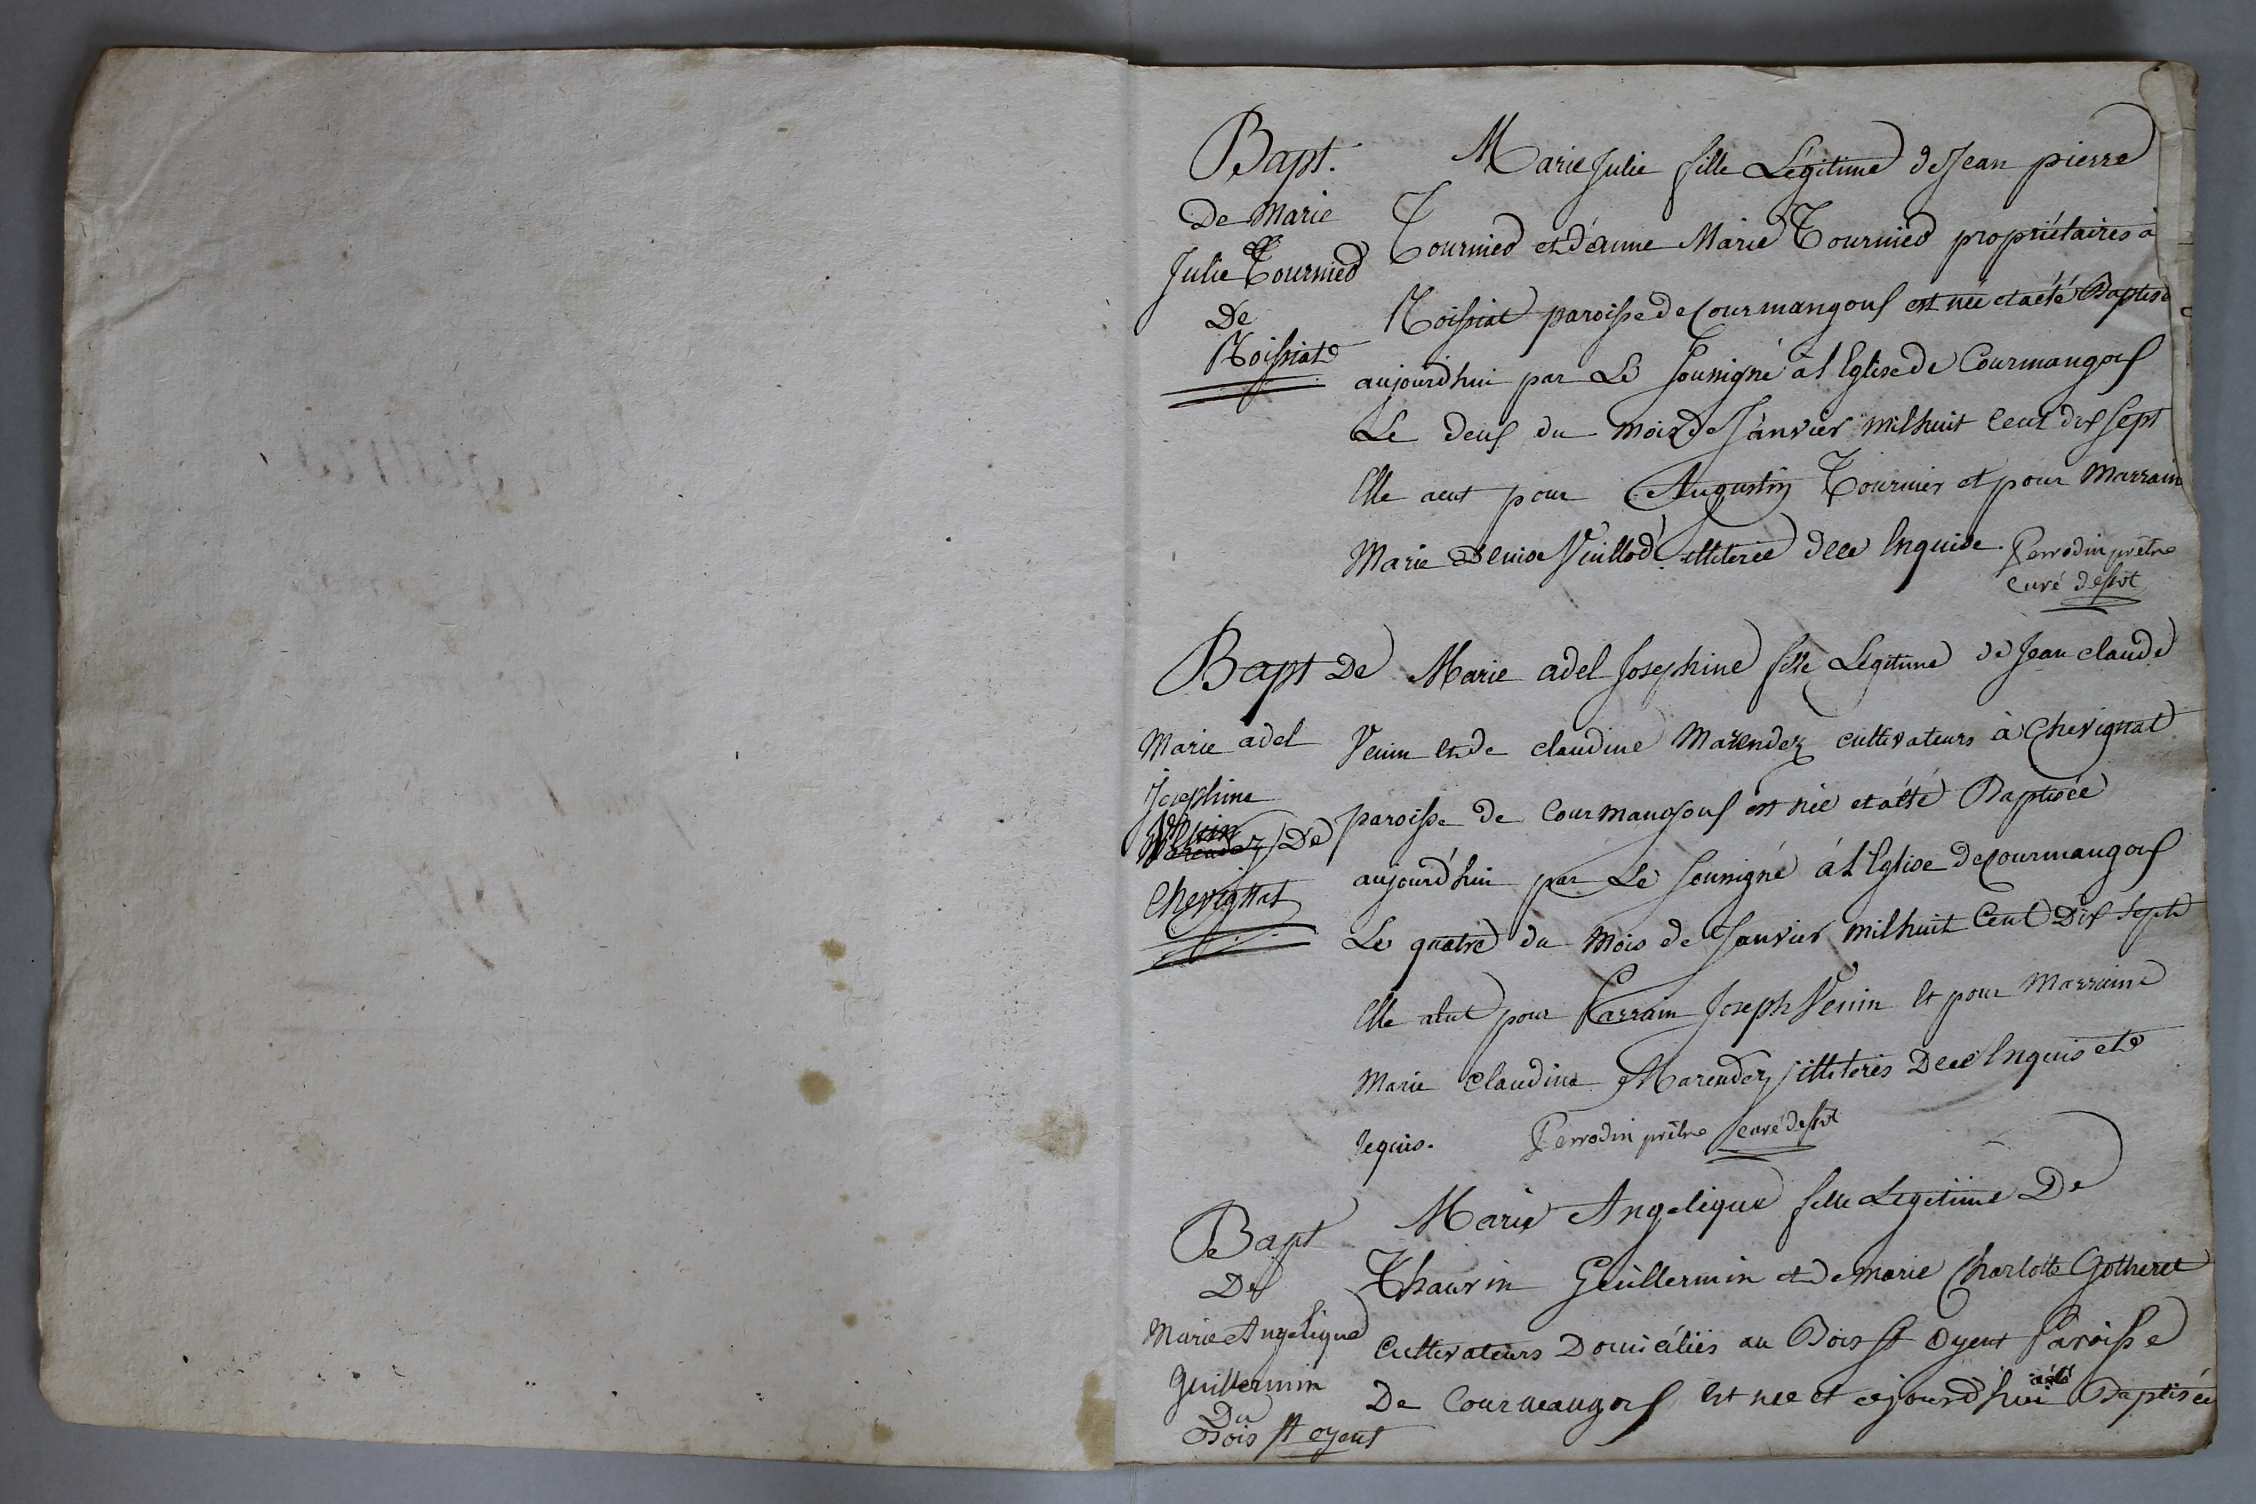 Bapt.
De Marie
Julie Tournier
De
Roissiat
Marie Julie fille Légitime de Jean pierre
Tournier et d'anne Marie Tournier propriétaires à
Roissiat paroisse de Courmangoux est née et a été Baptisé
aujourd'hui par Le Soussigné à l'Eglise de Courmangoux
Le deux du mois de Janvier mil huit Cent dix Sept
Elle a eut pour Augustin Tournier et pour Marrain
Marie Denise Vuillod illiterée de ce Enquise. Perrodin prêtre
Curé desservt
Bapt De
Marie adel
Josephine
Venin
Marendez De
Chevignat
Marie adel Josephine fille Légitime de Jean claude
Venin et de claudine Marendez cultivateurs à Chevignat
paroisse de Courmangoux est née et a été Baptisée
aujourd'hui par Le Soussigné à l'Eglise de Courmangoux
Le quatre du Mois de Janvier mil huit Cent Dix Sept
Elle a eut pour Parrain Joseph Venin et pour Marraine
Marie Claudine Marendez illiterés De ce Enquis et
requis. Perrodin prêtre Curé desservt
Bapt
De
Marie Angelique
Guillermin
Du
Bois St oyent
Marie Angelique fille Legitime De
Thaurin Guillermin et de marie Charlotte Gotheret
Cultivateurs Domiciliés au Bois St oyent Paroisse
De Courmangoux Est née et cejourd'hui a été Baptisée